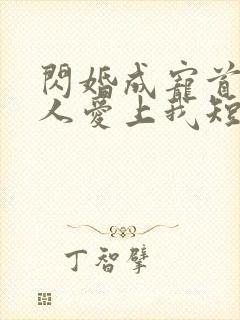 閃婚成寵首
人愛上我短
丁智擘